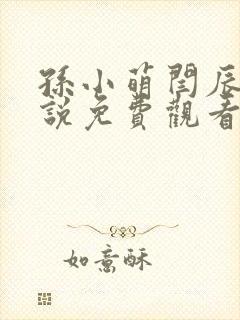 孫小萌閆辰
說免費觀看
如意酥